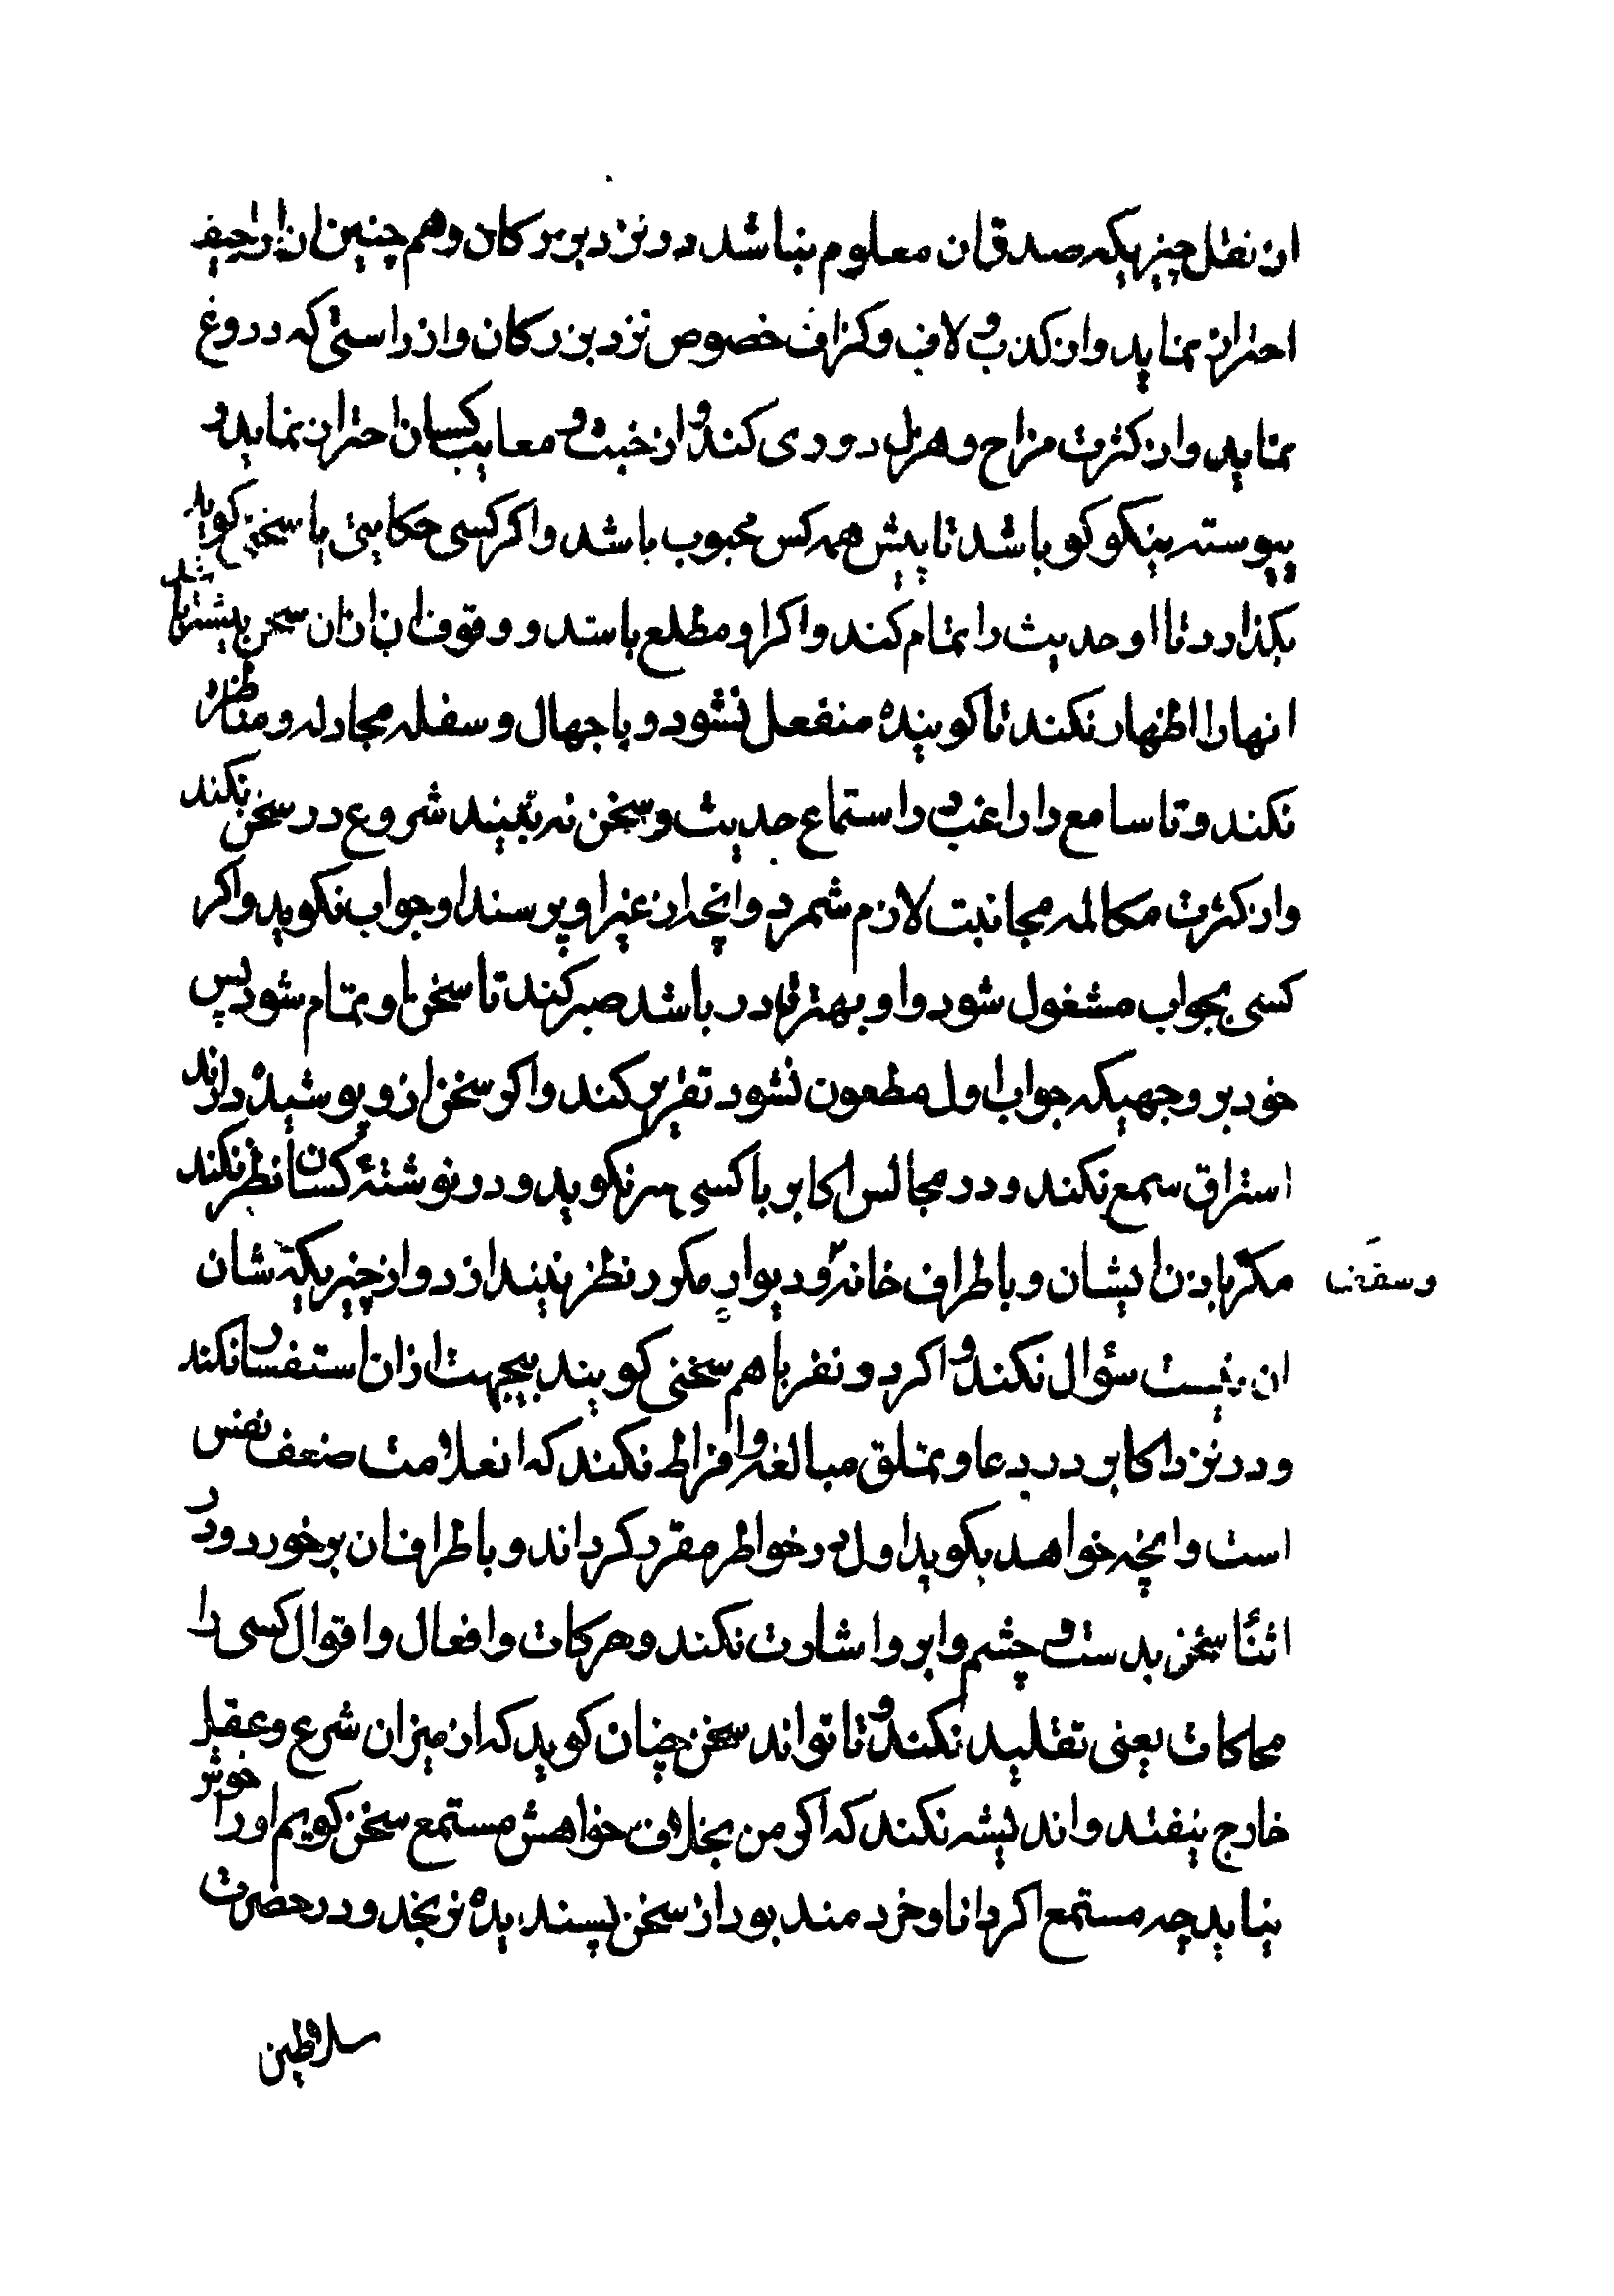 از نقل چیزیکه صدق ان معلوم نباشد در نزد بزرکان و هم چنین از اراجیف
احتراز نماید و از کذب و لاف و کزاف خصوص نزد بزرکان و از راستی که دروغ
نماید و از کثرت مزاح و هزل دوری کند و از خبث و معایب کسان احتراز نماید و
پیوسته نیکو کو باشد تا پیش همه کس محبوب باشد و اکر کسی حکایتی یا سخن کوید
بکذارد تا او حدیث را تمام کند و اکر او مطلع باشد و وقوف ان از ان سخن بیشتر باشد
انها را اظهار نکند تا کوینده منفعل نشود و با جهال و سفله مجادله و مناظره
نکند و تا سامع را راغب در استماع حدیث و سخن نه بیند شروع در سخن نکند
و از کثرت مکالمه مجانبت لازم شمرد و انچه از غیر او پرسند او جواب نکوید و اکر
کسی بجواب مشغول شود و او بهتر قادر باشد صبر کند تا سخن او تمام شود پس
خود بر وجهیکه جواب اول مطعون نشود تقریر کند و اکر سخن از و پوشیده دارند
استراق سمع نکند و در مجالس اکابر با کسی سر نکوید و در نوشتهٔ کسان نظر نکند
مکر باذن ایشان و باطراف خانه و دیوار مکرر نظر نیندازد و از چیزیکه شان
وسقف
ان نیست سؤال نکند و اکر دو نفر با هم سخنی کویند بیجهت از ان استفسار نکند
و در نزد اکابر در دعا و تملق مبالغه و افراط نکند که انعلامت ضعف نفس
است و انچه خواهد بکوید اول در خواطر مقرر کرداند و باطراف ان برخورد و در
اثناء سخن بدست و چشم و ابرو اشارت نکند و هر کات و افعال و اقوال کسی را
محاکات یعنی تقلید نکند و تا تواند سخن چنان کوید که از میزان شرع و عقل
خارج نیفتد و اندیشه نکند که اکر من بخلاف خواهش مستمع سخن کویم او را خوش
نیاید چه مستمع اکر دانا و خردمند بود از سخن پسندیده نرنجد و در حضرت
سلاطین